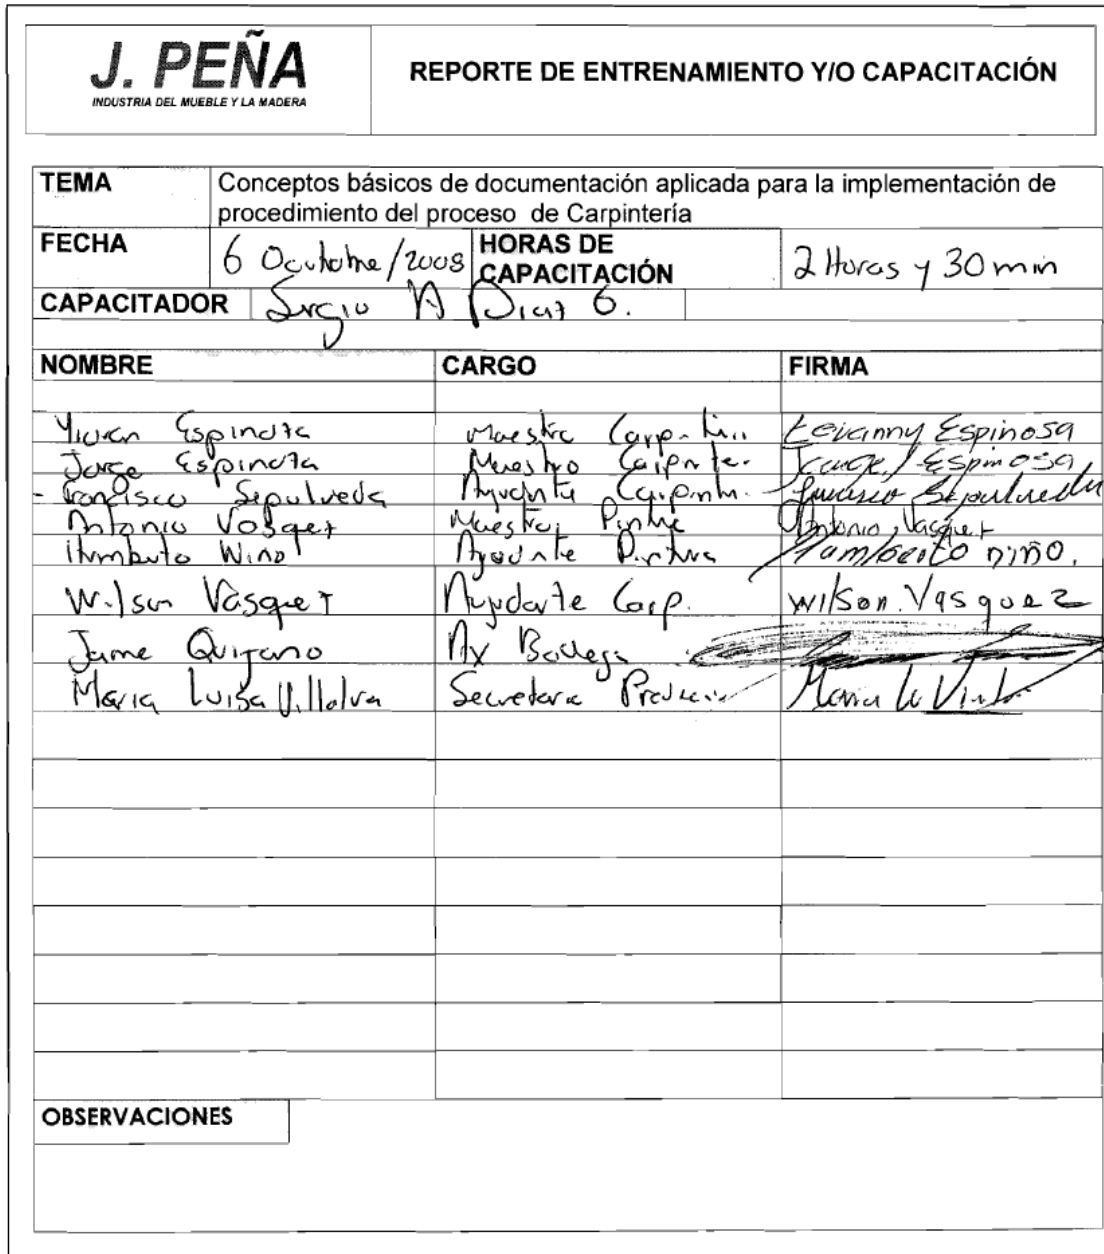 J. PEÑA
INDUSTRIA DEL MUEBLE Y LA MADERA
REPORTE DE ENTRENAMIENTO Y/O CAPACITACIÓN
TEMA Conceptos básicos de documentación aplicada para la implementación de
procedimiento del proceso de Carpintería
FECHA 6 /2008 HORAS DE CAPACITACIÓN 2 Horas y 30 min
CAPACITADOR Sergio A Diaz G.
NOMBRE CARGO FIRMA
Espinoza Maestro Espinosa
Jorge Espinoza Maestro Jorge Espinosa
Francisco Sepulveda Ayudante Sepulveda
Antonio Vasquez Maestro Antonio Vasquez
Humberto Nino Ayudante Humberto niño.
Wilson Vasquez Ayudante Carp. Wilson. Vasquez
Jaime Quijano Ax Bodega
Maria Luisa Villalva Secretaria Maria
OBSERVACIONES